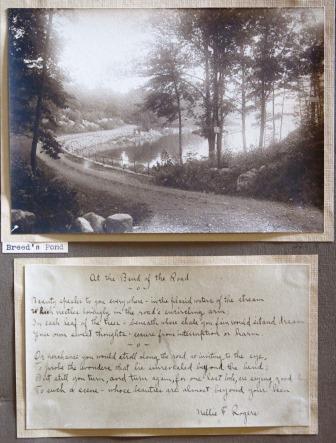 Breed's Pond
At the Bend of the Road
Beauty speaks to you everywhere - in the placid waters of the stream
Which nestles lovingly in the road's encircling arm;
In each leaf of the trees - beneath whose shade you fain would stand and dream
Your own sweet thoughts - secure from interruption or harm.
Or perchance you would stroll along the road so inviting to the eye,
To probe the wonders that lie unrevealed beyond the bend;
But still you turn, and turn again, for one last look, ere saying good
To such a scene - whose beauties are almost beyond your ken
Nellie F. Rogers